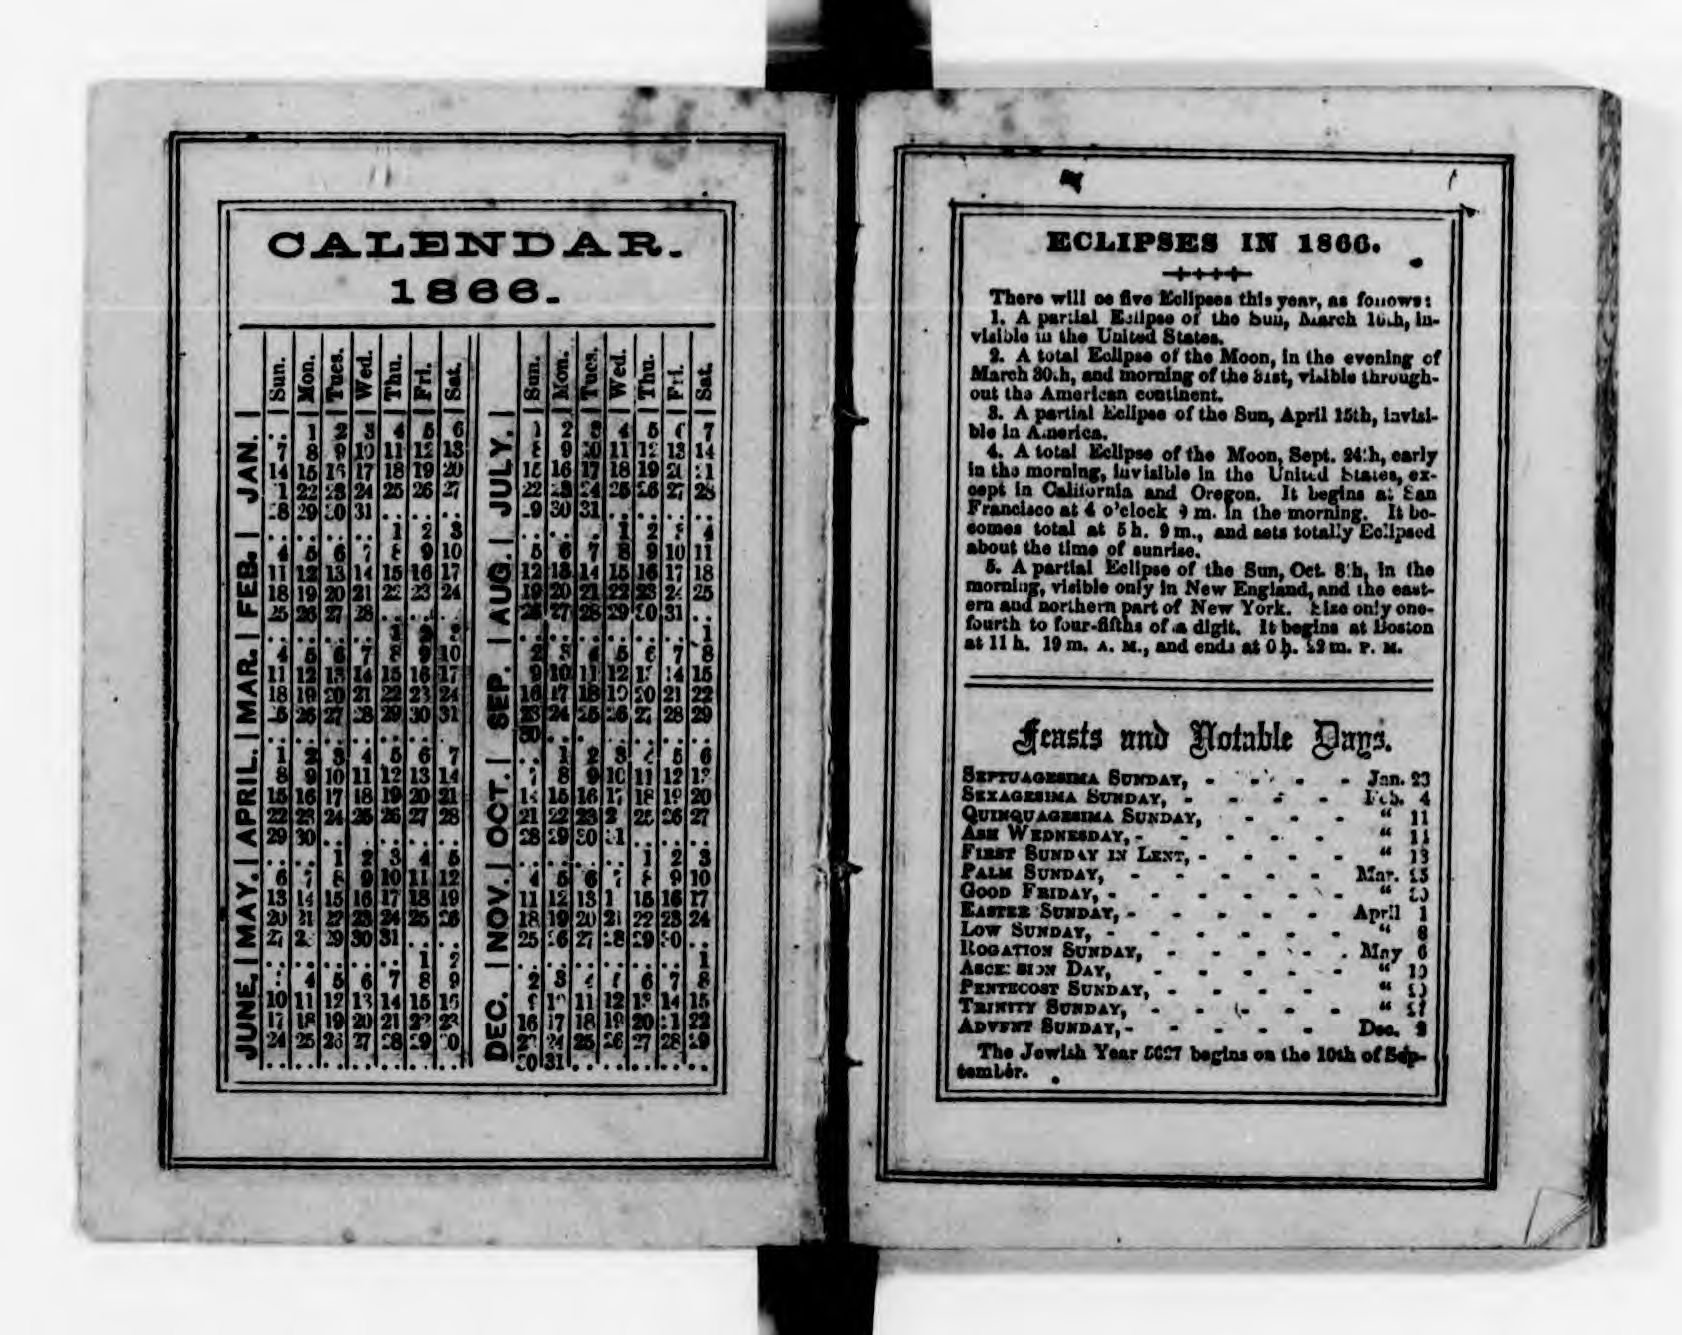 CALENDAR.
1866.
Sun. Mon. Tues. Wed. Thu. Fri. Sat.
JAN.
.. 1 2 3 4 5 6
7 8 9 10 11 12 13
14 15 16 17 18 19 20
22 23 24 25 26 27
28 29 30 31 .. .. ..
FEB.
.. .. .. .. 1 2 3
4 5 6 7 8 9 10
11 12 13 14 15 16 17
18 19 20 21 22 23 24
25 26 27 28 .. .. ..
MAR.
.. .. .. .. 1 2 3
4 5 6 7 8 9 10
11 12 13 14 15 16 17
18 19 20 21 22 23 24
25 26 27 28 29 30 31
APRIL.
.. .. .. .. .. .. ..
1 2 3 4 5 6 7
8 9 10 11 12 13 14
15 16 17 18 19 20 21
22 23 24 25 26 27 28
29 30 .. .. .. .. ..
MAY.
.. .. 1 2 3 4 5
6 7 8 9 10 11 12
13 14 15 16 17 18 19
20 21 22 23 24 25 26
27 28 29 30 31 .. ..
JUNE.
.. .. .. .. .. 1 2
3 4 5 6 7 8 9
10 11 12 13 14 15 16
17 18 19 20 21 22 23
24 25 26 27 28 29 30
.. .. .. .. .. .. ..
Sun. Mon. Tues. Wed. Thu. Fri. Sat.
JULY.
1 2 3 4 5 6 7
8 9 10 11 12 13 14
15 16 17 18 19 20 21
22 23 24 25 26 27 28
29 30 31 .. .. .. ..
AUG.
.. .. .. 1 2 3 4
5 6 7 8 9 10 11
12 13 14 15 16 17 18
19 20 21 22 23 24 25
26 27 28 29 30 31 ..
SEP.
.. .. .. .. .. .. 1
2 3 4 5 6 7 8
9 10 11 12 13 14 15
16 17 18 19 20 21 22
23 24 25 26 27 28 29
30 .. .. .. .. .. ..
OCT.
.. 1 2 3 4 5 6
7 8 9 10 11 12 13
14 15 16 17 18 19 20
21 22 23 25 26 27
28 29 30 31 .. .. ..
NOV.
.. .. .. .. 1 2 3
4 5 6 7 8 9 10
11 12 13 15 16 17
18 19 20 21 22 23 24
25 26 27 28 29 30 ..
DEC.
.. .. .. .. .. .. 1
2 3 4 5 6 7 8
9 10 11 12 13 14 15
16 17 18 19 20 21 22
23 24 25 26 27 28 29
30 31 .. .. .. .. ..
ECLIPSES IN 1866.
There will be five Eclipses this year, as follows:
1. A partial Eclipse of the Sun, March 16th, in-
visible in the United States.
2. A total Eclipse of the Moon, in the evening of
March 30th, and morning of the 31st, visible through-
out the American continent.
3. A partial Eclipse of the Sun, April 15th, invisi-
ble in America.
4. A total Eclipse of the Moon, Sept. 24th, early
in the morning, invisible in the United States, ex-
cept in California and Oregon. It begins at San
Francisco at 4 o'clock m. in the morning. It be-
comes total at 5 h. 9 m., and sets totally Eclipsed
about the time of sunrise.
5. A partial Eclipse of the Sun, Oct. 8th, in the
morning, visible only in New England, and the east-
ern and northern part of New York. Size only one-
fourth to four-fifths of a digit. It begins at Boston
at 11 h. 19 m. A. M., and ends at 0 h. m. P. M.
Feasts and Notable Days.
SEPTUAGESIMA SUNDAY, - - - - Jan. 23
SEXAGESIMA SUNDAY, - - - Feb. 4
QUINQUAGESIMA SUNDAY, - - - " 11
ASH WEDNESDAY, - - - - - " 14
FIRST SUNDAY IN LENT, - - - - " 18
PALM SUNDAY, - - - - - Mar. 25
GOOD FRIDAY, - - - - - "
EASTER SUNDAY, - - - - - April 1
LOW SUNDAY, - - - - - - " 8
ROGATION SUNDAY, - - - - . May 6
ASCENSION DAY, - - - - - " 10
PENTECOST SUNDAY, - - - - " 20
TRINITY SUNDAY, - - - - - " 27
ADVENT SUNDAY, - - - - - Dec. 2
The Jewish Year 5627 begins on the 10th of Sep-
tember.